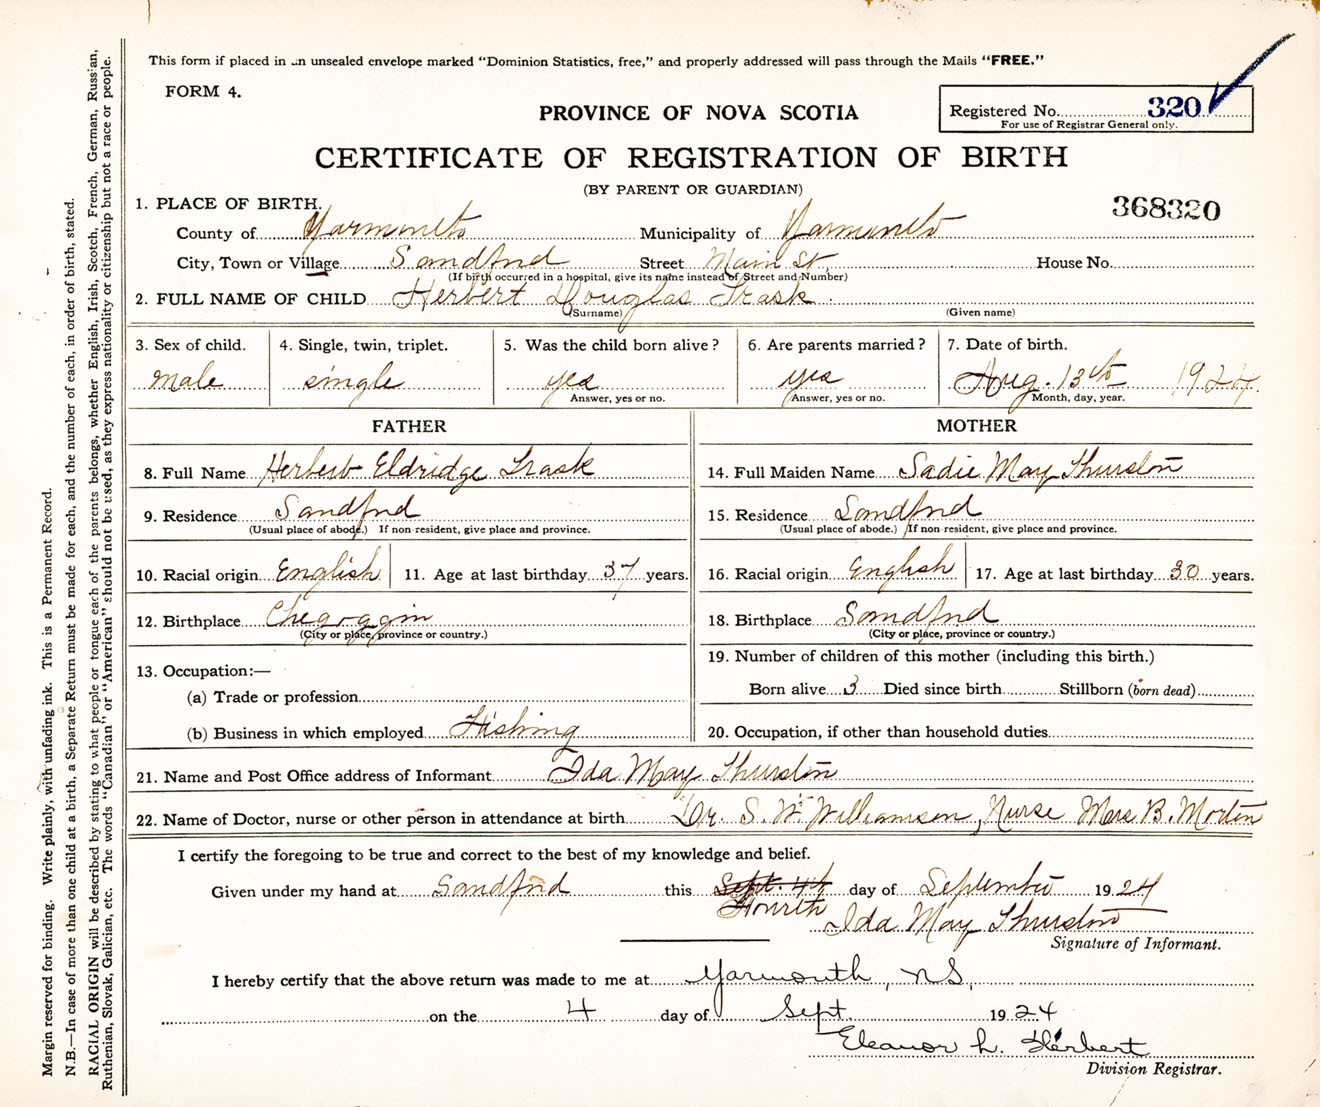 This form if placed in an unsealed envelope marked “Dominion Statistics, free,” and properly addressed will pass through the Mails “FREE.”
FORM 4.
PROVINCE OF NOVA SCOTIA
Registered No. 320
For use of Registrar General only.
CERTIFICATE OF REGISTRATION OF BIRTH
(BY PARENT OR GUARDIAN)
368320
1. PLACE OF BIRTH.
County of Yarmouth Municipality of Yarmouth
City, Town or Village Sandford Street Main St. House No.
(If birth occurred in a hospital, give its name instead of Street and Number)
2. FULL NAME OF CHILD Herbert Douglas Trask
(Surname) (Given name)
3. Sex of child. 4. Single, twin, triplet. 5. Was the child born alive? 6. Are parents married? 7. Date of birth.
male single yes yes Aug. 13th 1924
Answer, yes or no. Answer, yes or no. Month, day, year.
FATHER MOTHER
8. Full Name Herbert Eldridge Trask 14. Full Maiden Name Sadie May Thurston
9. Residence Sandford 15. Residence Sandford
(Usual place of abode.) If non-resident, give place and province. (Usual place of abode.) If non-resident, give place and province.
10. Racial origin English 11. Age at last birthday 37 years. 16. Racial origin English 17. Age at last birthday 30 years.
12. Birthplace Chegoggin 18. Birthplace Sandford
(City or place, province or country.) (City or place, province or country.)
13. Occupation:— 19. Number of children of this mother (including this birth.)
(a) Trade or profession Born alive 3 Died since birth Stillborn (born dead)
(b) Business in which employed Fishing 20. Occupation, if other than household duties
21. Name and Post Office address of Informant Ida May Thurston
22. Name of Doctor, nurse or other person in attendance at birth Dr. S. W. Williamson, Nurse Mrs B. Morton
I certify the foregoing to be true and correct to the best of my knowledge and belief.
Given under my hand at Sandford this Sept. 4th day of September 1924
Fourth Ida May Thurston
Signature of Informant.
I hereby certify that the above return was made to me at Yarmouth, N.S.
on the 4 day of Sept 1924
Eleanor L. Herbert
Division Registrar.
Margin reserved for binding. Write plainly, with unfading ink. This is a Permanent Record.
N.B.—In case of more than one child at a birth, a Separate Return must be made for each, and the number of each, in order of birth, stated.
RACIAL ORIGIN will be described by stating to what people or tongue each of the parents belongs, whether English, Irish, Scotch, French, German, Russian,
Ruthenian, Slovak, Galician, etc. The words “Canadian” or “American” should not be used, as they express nationality or citizenship but not a race or people.